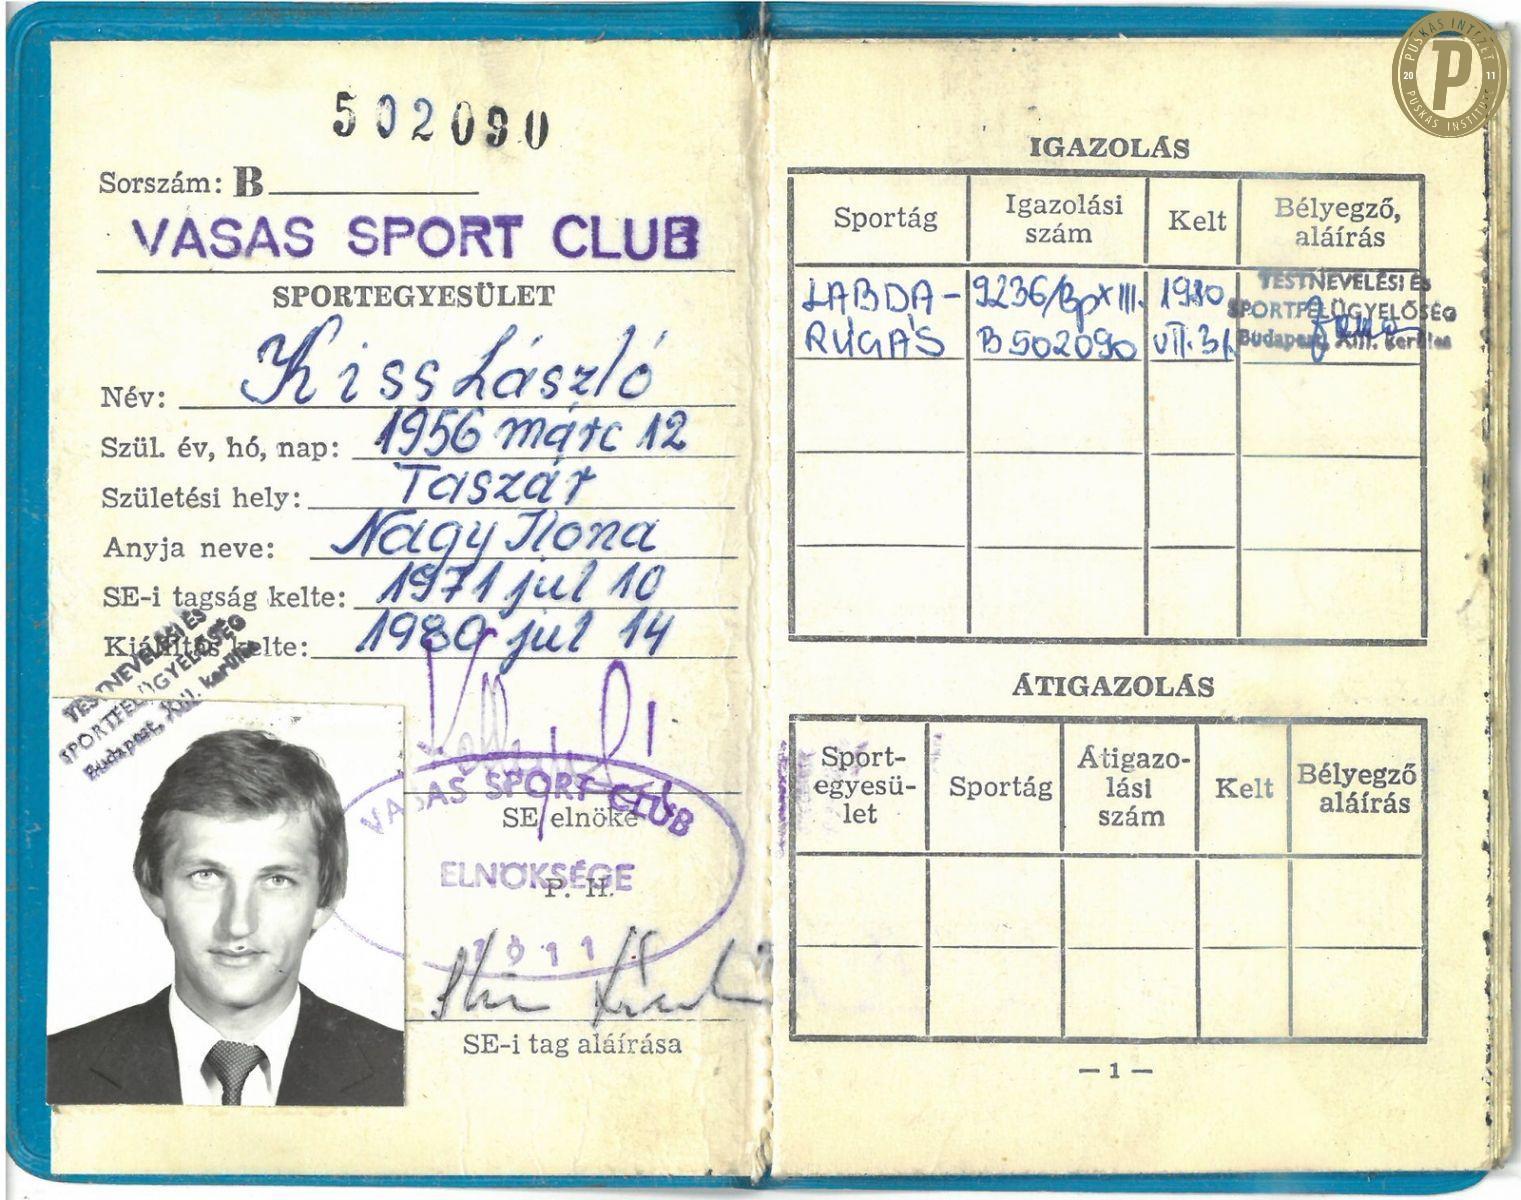 502090
Sorszám: B
VASAS SPORT CLUB
SPORTEGYESÜLET
Név: Kiss László
Szül. év, hó, nap: 1956 márc 12
Születési hely: Taszár
Anyja neve: Nagy Ilona
SE-i tagság kelte: 1971 jul 10
Kiállítás kelte: 1980 jul 14
TESTNEVELÉSI ÉS
SPORTFELÜGYELŐSÉG
Budapest, XIII. kerület
VASAS SPORT CLUB
SE elnöke
ELNÖKSÉGE
P. H.
1911
SE-i tag aláírása
PUSKÁS INTÉZET
20 P 11
PUSKÁS INSTITUTE
IGAZOLÁS
Sportág Igazolási szám Kelt Bélyegző, aláírás
LABDA- 9236/Bp XIII. 1980
RÚGÁS B 502090 VII. 31.
TESTNEVELÉSI ÉS
SPORTFELÜGYELŐSÉG
Budapest, XIII. kerület
ÁTIGAZOLÁS
Sport-egyesü-let Sportág Átigazo-lási szám Kelt Bélyegző aláírás
— 1 —